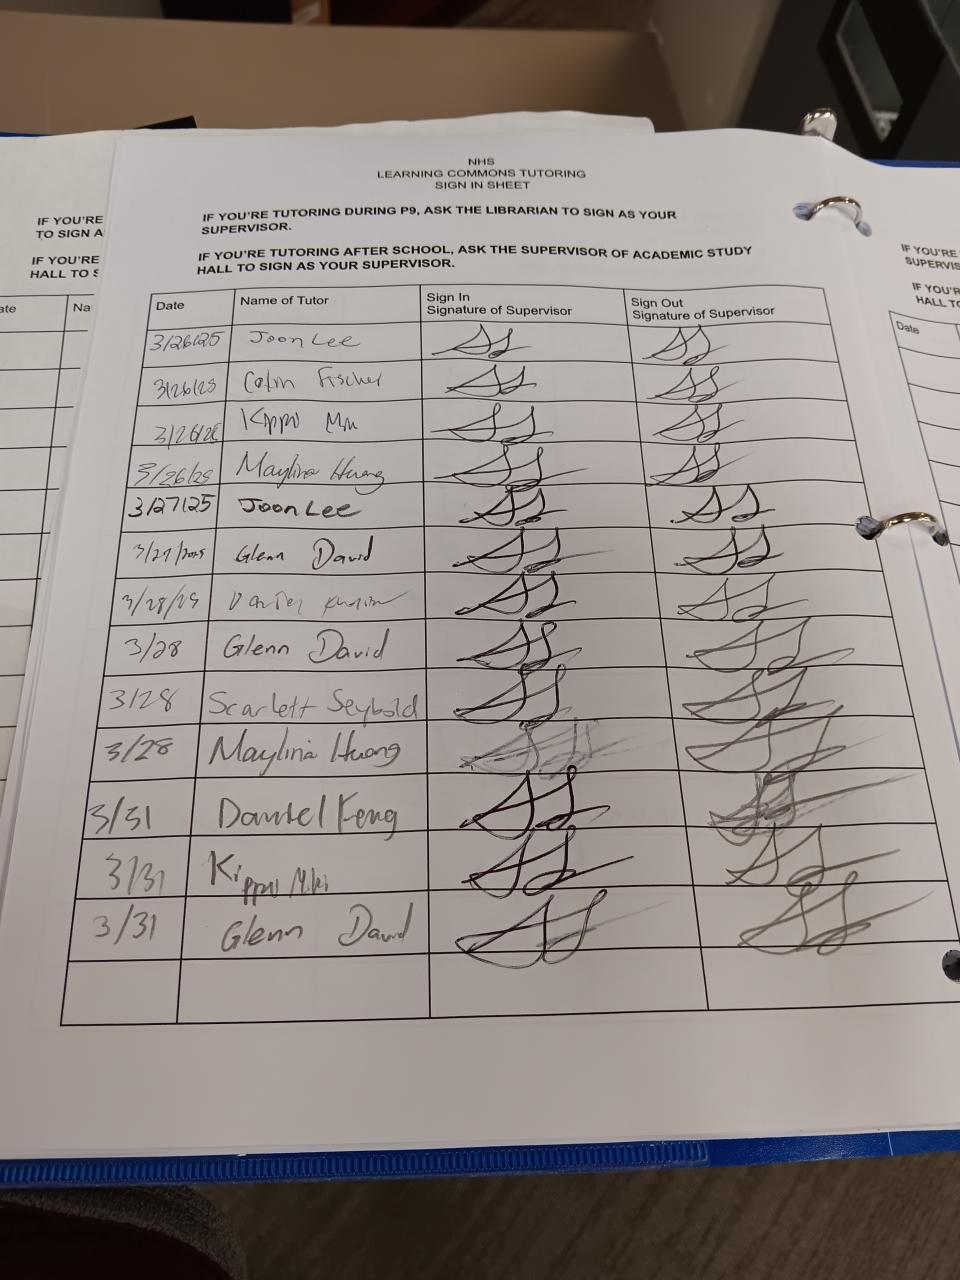 NHS
LEARNING COMMONS TUTORING
SIGN IN SHEET
IF YOU'RE TUTORING DURING P9, ASK THE LIBRARIAN TO SIGN AS YOUR
SUPERVISOR.
IF YOU'RE TUTORING AFTER SCHOOL, ASK THE SUPERVISOR OF ACADEMIC STUDY
HALL TO SIGN AS YOUR SUPERVISOR.
Date Name of Tutor Sign In Sign Out
Signature of Supervisor Signature of Supervisor
3/26/25 Joon Lee
3/26/25 Colin Fischer
3/26/25 Kippu
3/26/25 Maylina Huang
3/27/25 Joon Lee
3/27/2025 Glenn David
3/28/25
3/28 Glenn David
3/28 Scarlett Seybold
3/28 Maylina Huang
3/31 Daniel Feng
3/31
3/31 Glenn David
IF YOU'RE
TO SIGN A
IF YOU'RE
HALL TO S
ate Na
IF YOU'RE
SUPERVIS
IF YOU'R
HALL TO
Date